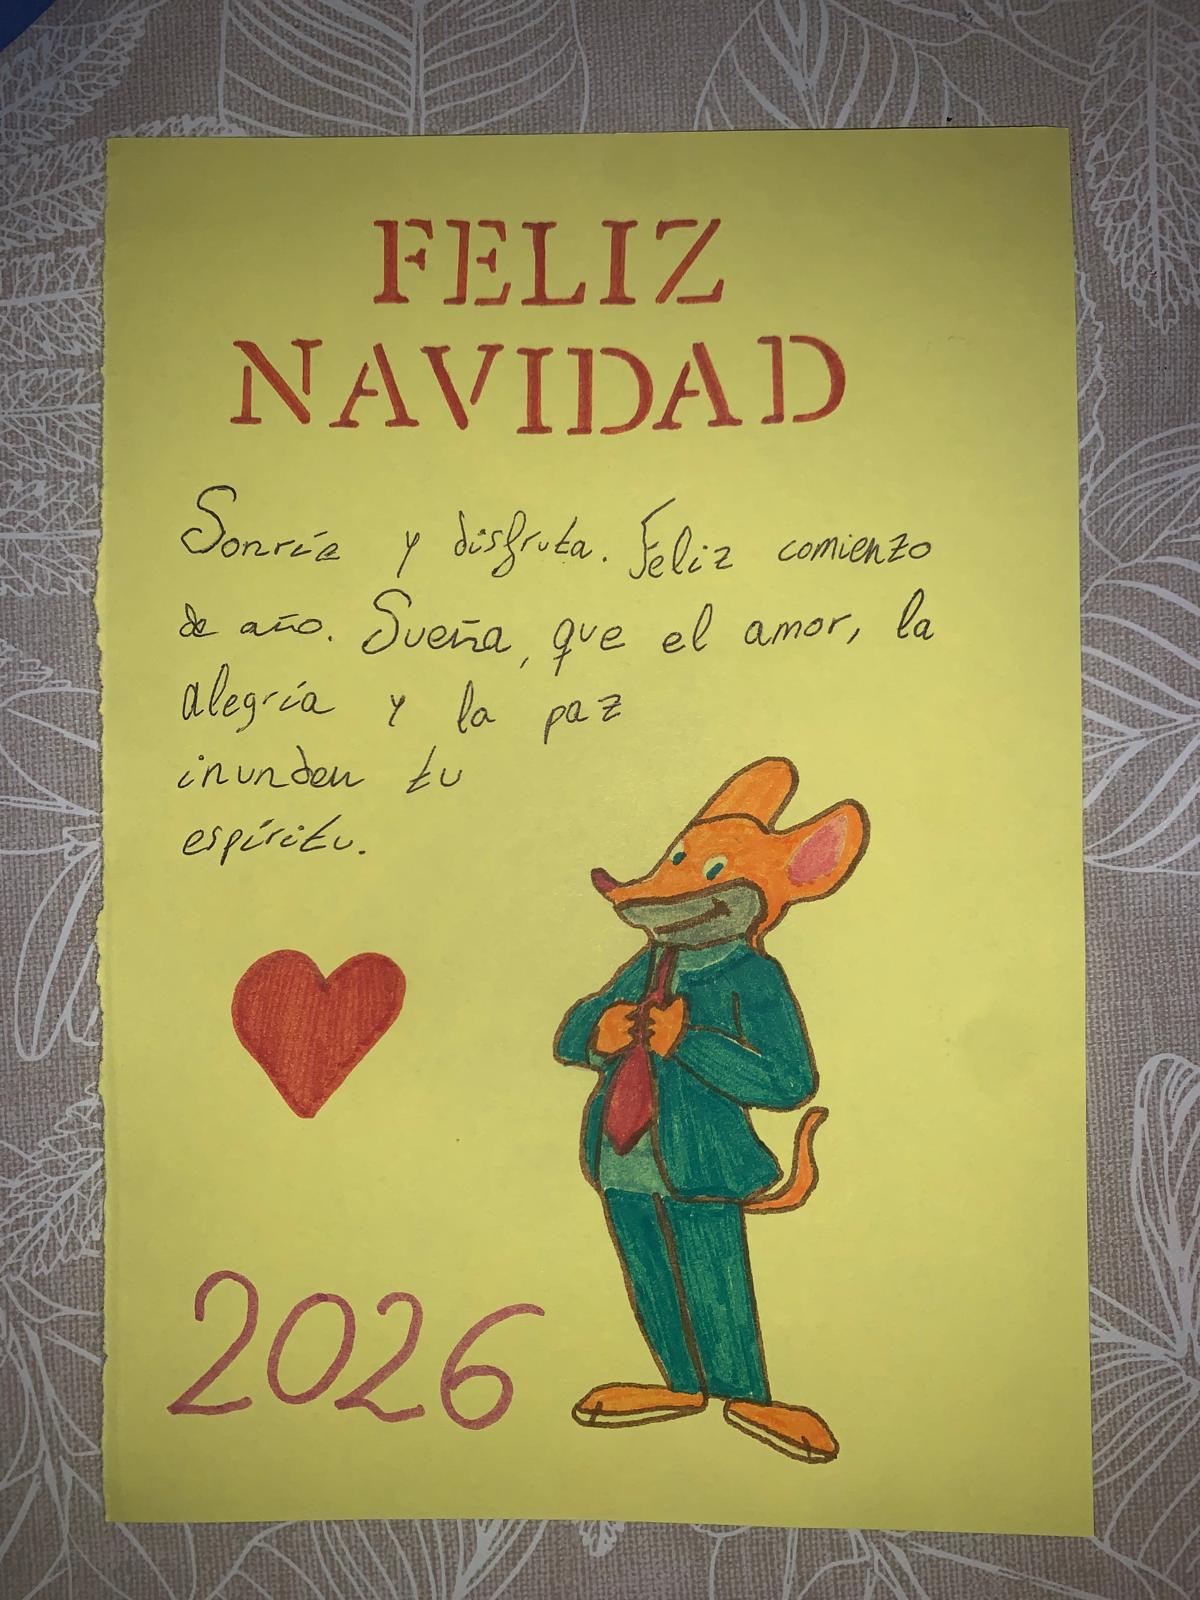 FELIZ
NAVIDAD
Sonríe y disfruta. Feliz comienzo
de año. Sueña, que el amor, la
alegría y la paz
inunden tu
espíritu.
2026